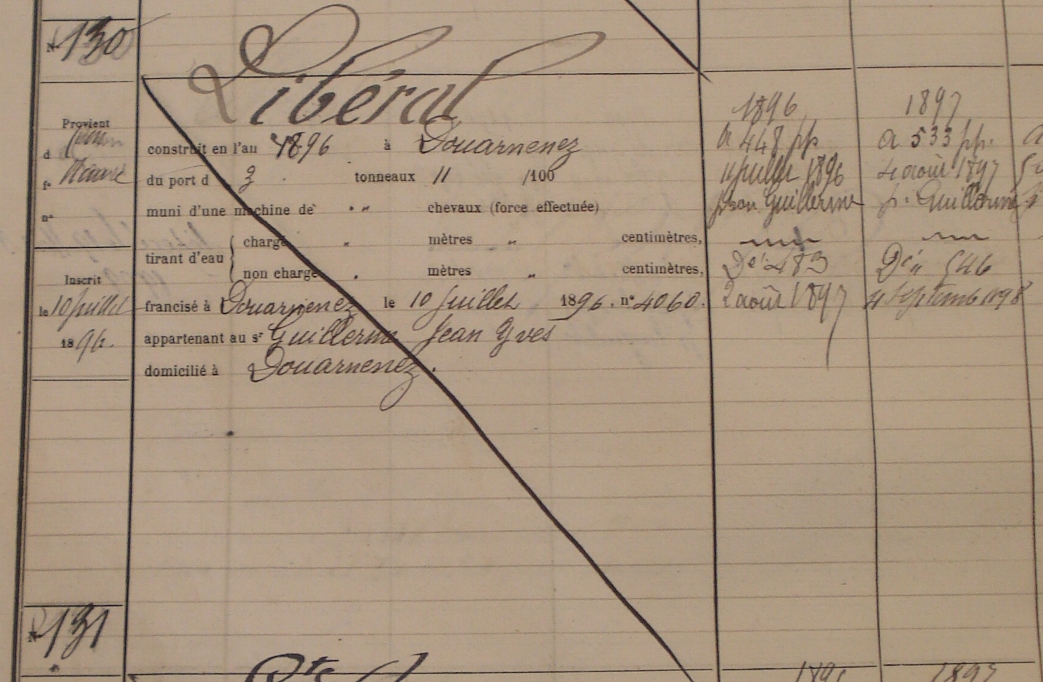 N° 130
Libéral
Provient
d
f°
n°
construit en l'an 1896 à Douarnenez
du port d 3 tonneaux 11 /100
muni d'une machine de " " chevaux (force effectuée)
tirant d'eau { chargé " mètres " centimètres,
non chargé " mètres " centimètres,
Inscrit
le 10 Juillet
1896.
francisé à Douarnenez le 10 Juillet 1896. n° 4060.
appartenant au sr Guillerme Jean Yves
domicilié à Douarnenez.
1896
a 448 pp
11 juillet 1896
Guillerme
Dé 483
2 août 1897
1897
a 533 pp.
4 août 1897
p. Guillerme
Dé 546
4 Septemb 1898
N° 131
1896
1897